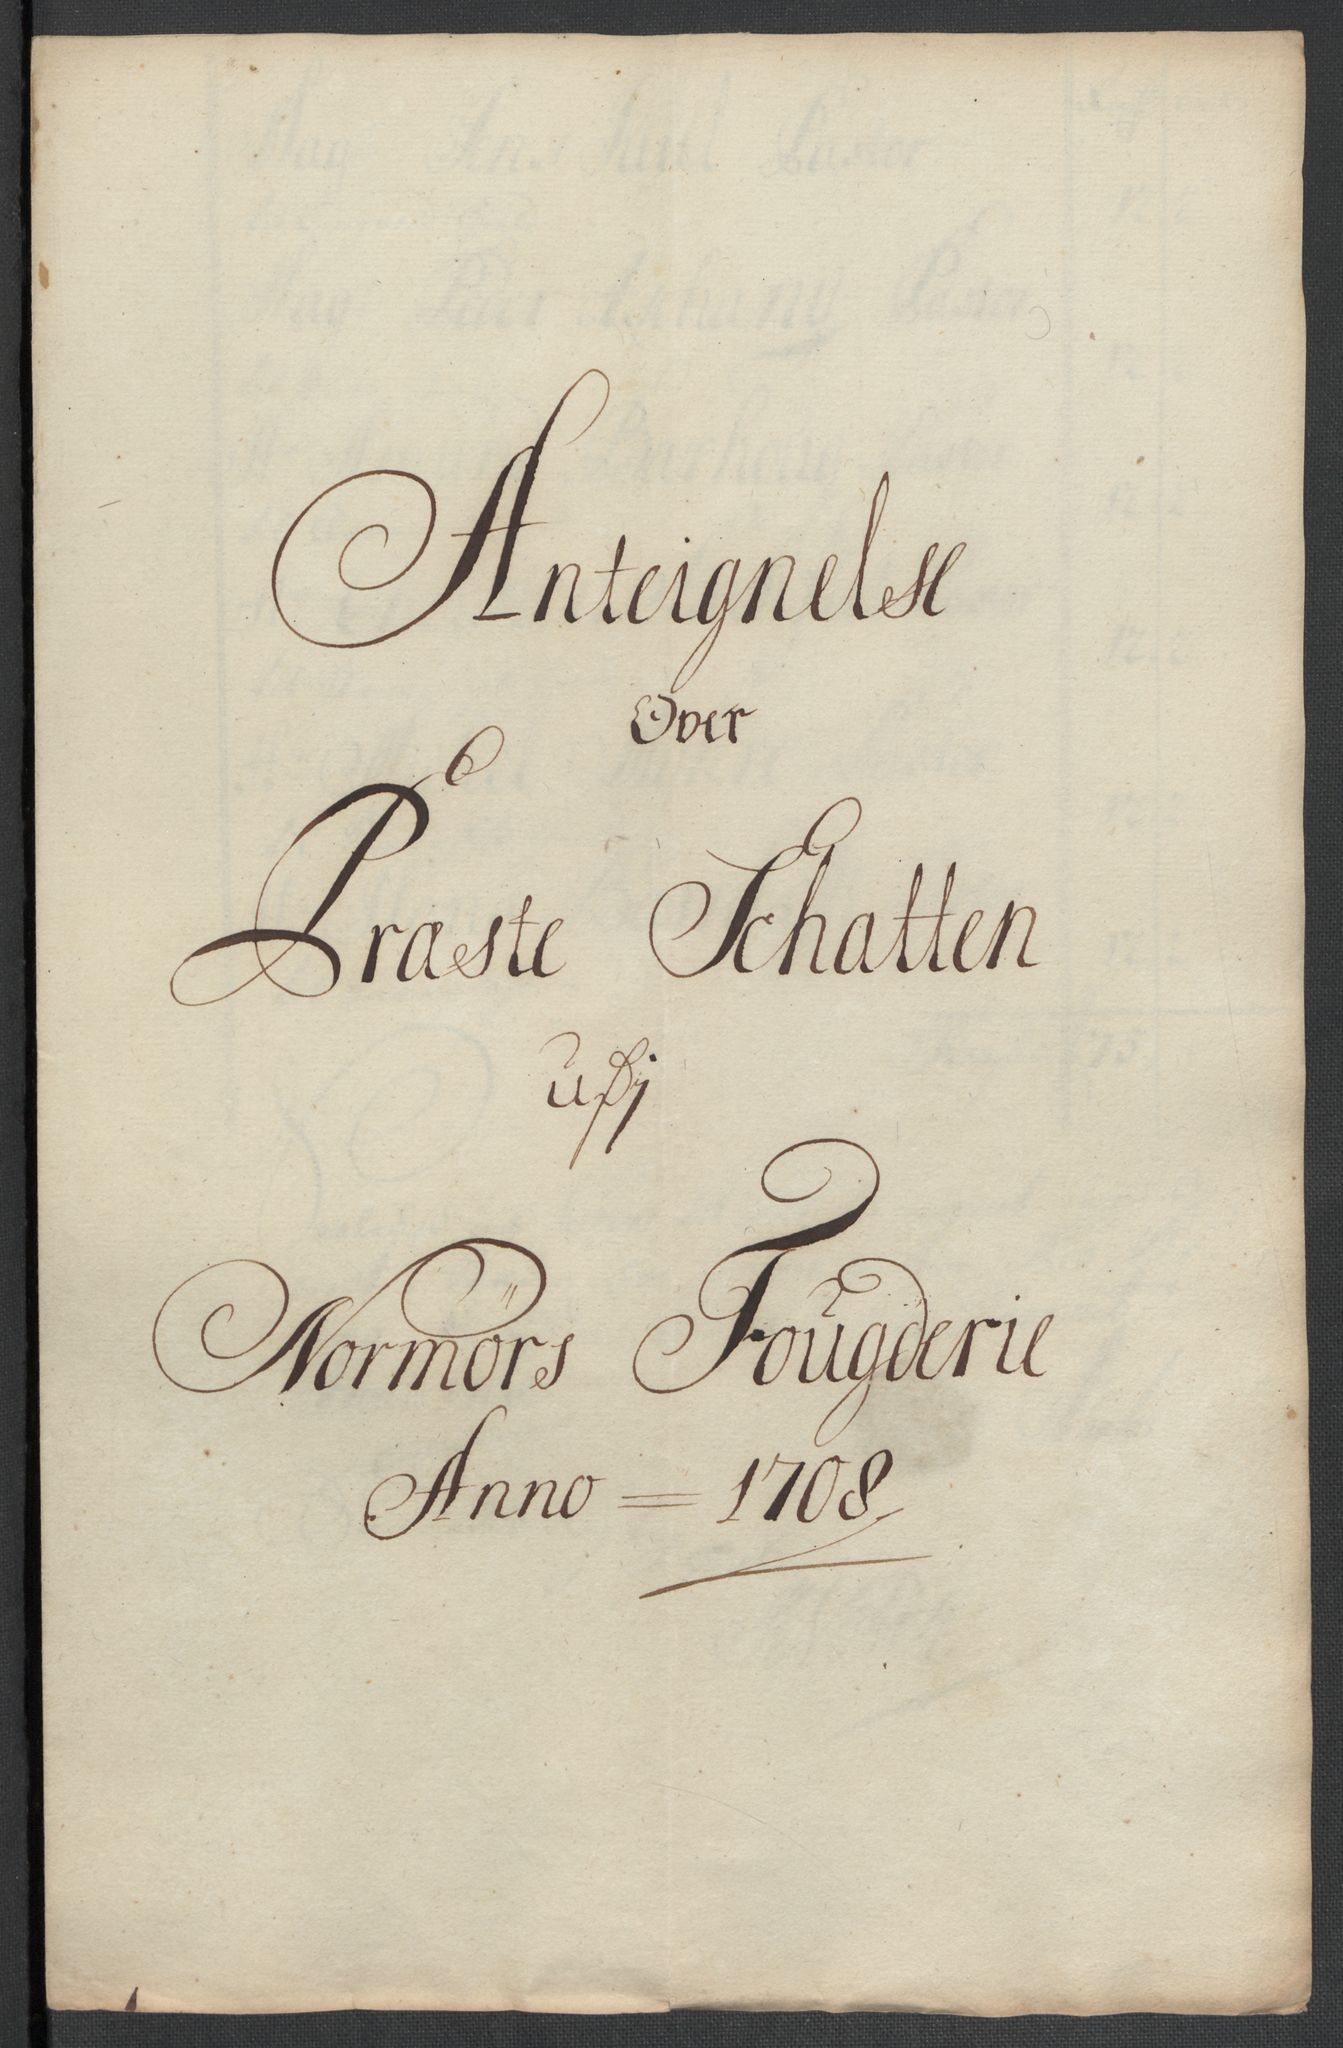 Anteignelse
Over
Præste Schatten
udj
Normörs Fougderie
Anno = 1708